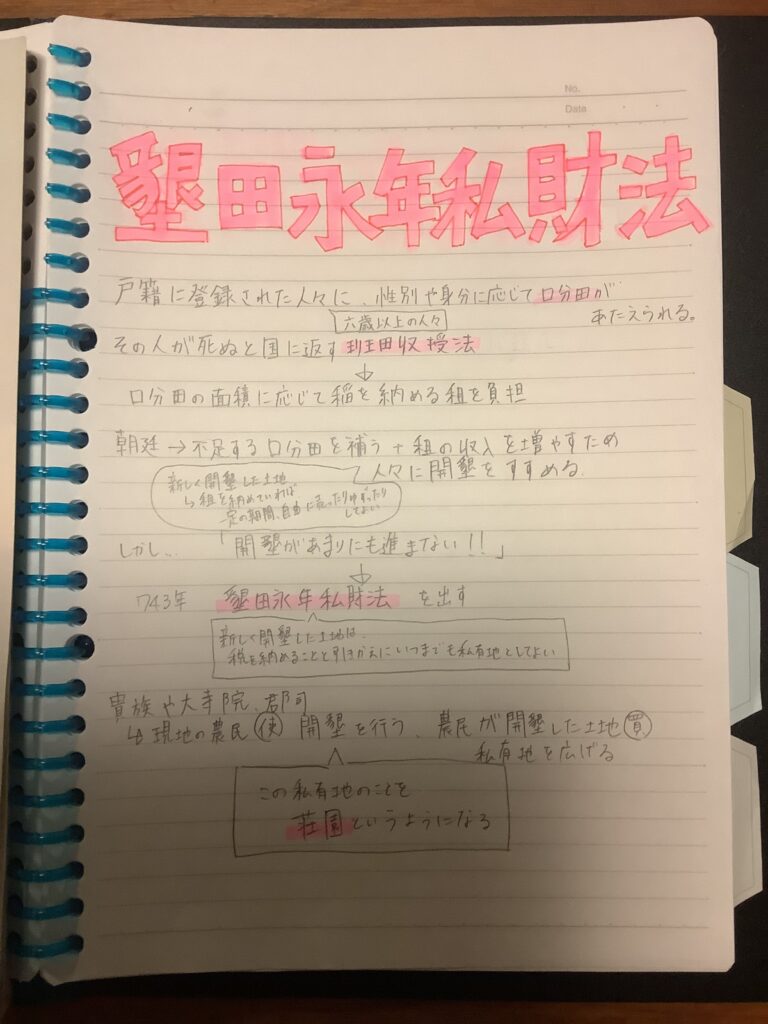 No.
Date
墾田永年私財法
戸籍に登録された人々に、性別や身分に応じて口分田が
あたえられる。
六歳以上の人々
その人が死ぬと国に返す班田収授法
↓
口分田の面積に応じて稲を納める租を負担
朝廷→不足する口分田を補う+租の収入を増やすため
人々に開墾をすすめる.
新しく開墾した土地
↳租を納めていれば
一定の期間、自由に売ったりゆずったり
してよい
しかし... 「開墾があまりにも進まない!!」
↓
743年 墾田永年私財法 を出す
新しく開墾した土地は、
税を納めることと引きかえにいつまでも私有地としてよい
貴族や大寺院、郡司
↳現地の農民使 開墾を行う、農民が開墾した土地買
私有地を広げる
この私有地のことを
荘園というようになる